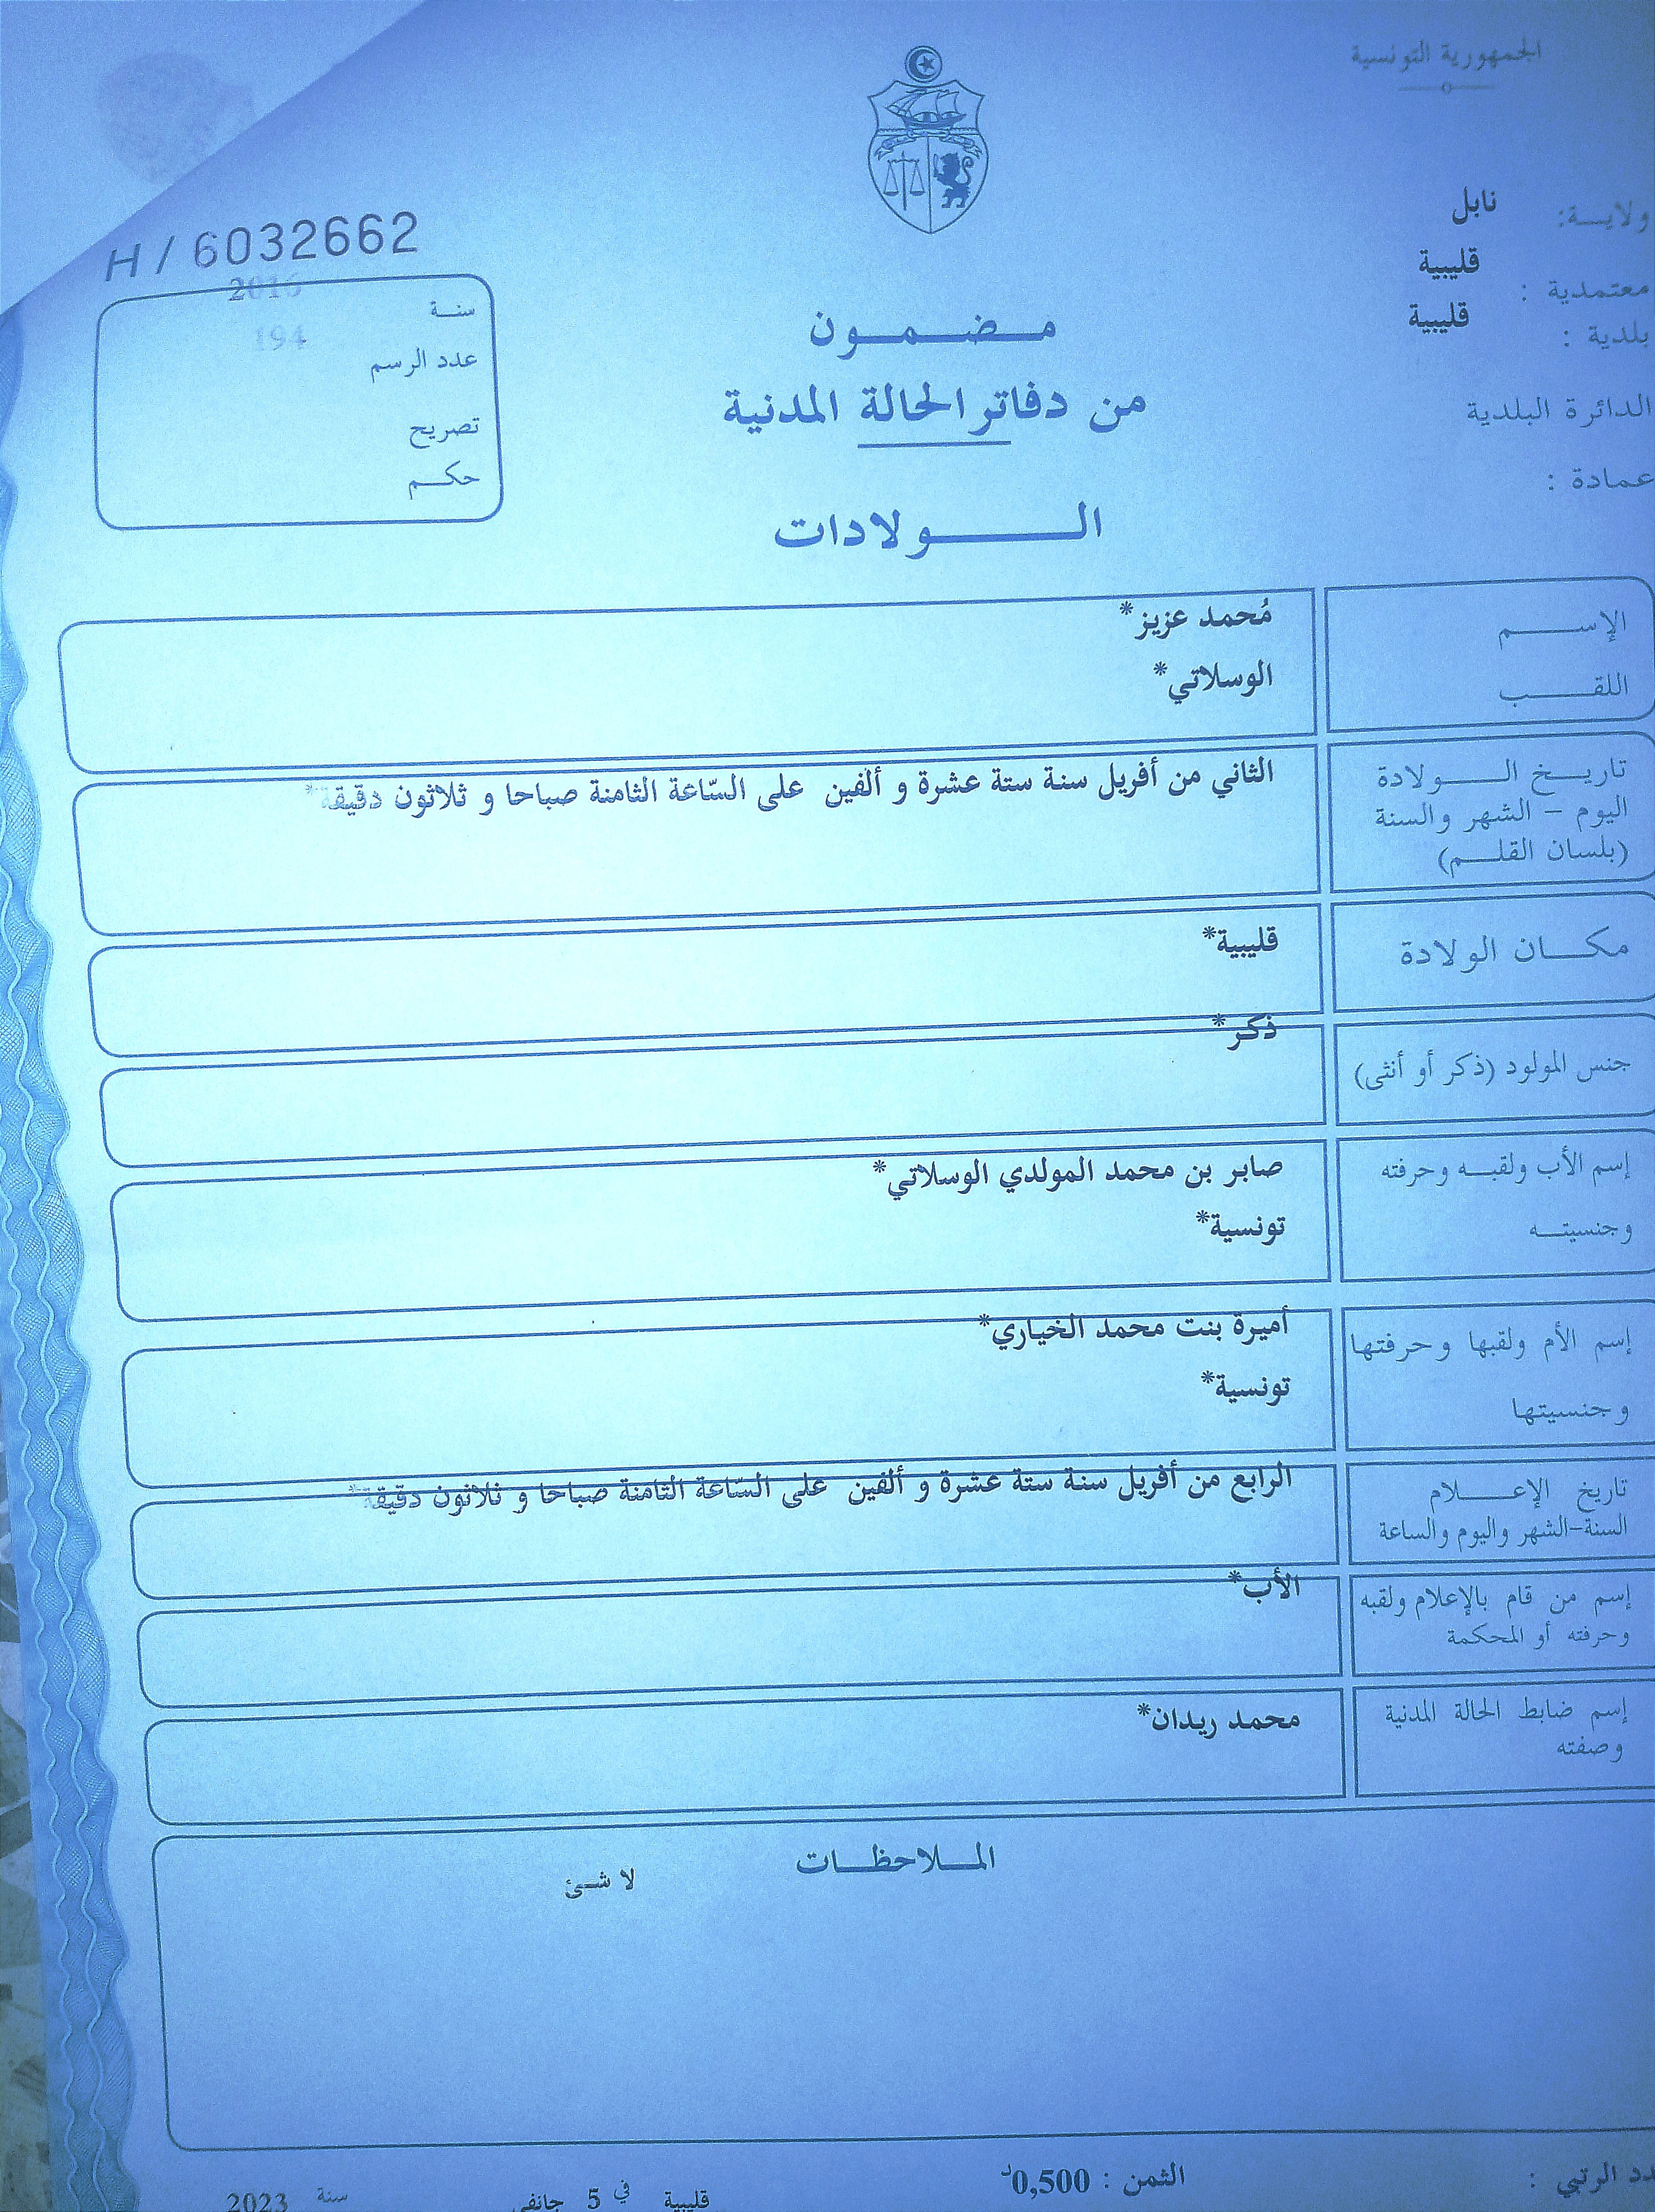 الجمهورية التونسية
ولايـــة: نابل
معتمدية : قليبية
بلدية : قليبية
الدائرة البلدية
عمادة :
H / 6032662
2016
سنـة
194
عدد الرسم
تصريح
حكـــم
مـــضـــمـــون
من دفاتر الحالة المدنية
الـــــولادات
الإســـــم مُحمد عزيز*
اللقـــــب الوسلاتي*
تاريــخ الــــولادة الثاني من أفريل سنة ستة عشرة و ألفين على السّاعة الثامنة صباحا و ثلاثون دقيقة*
اليوم – الشهر والسنة
(بلسان القلــم)
مكـــان الولادة قليبية*
جنس المولود (ذكر أو أنثى) ذكر*
إسم الأب ولقبــه وحرفته صابر بن محمد المولدي الوسلاتي*
وجنسيتــه تونسية*
إسم الأم ولقبها وحرفتها أميرة بنت محمد الخياري*
وجنسيتها تونسية*
تاريخ الإعـــــلام الرابع من أفريل سنة ستة عشرة و ألفين على السّاعة الثامنة صباحا و ثلاثون دقيقة*
السنة-الشهر واليوم والساعة
إسم من قام بالإعلام ولقبه الأب*
وحرفته أو المحكمة
إسم ضابط الحالة المدنية محمد ريدان*
وصفته
المــلاحظـــات
لا شئ
الرتبي :
الثمن : 0,500د
قليبية في 5 جانفي سنة 2023